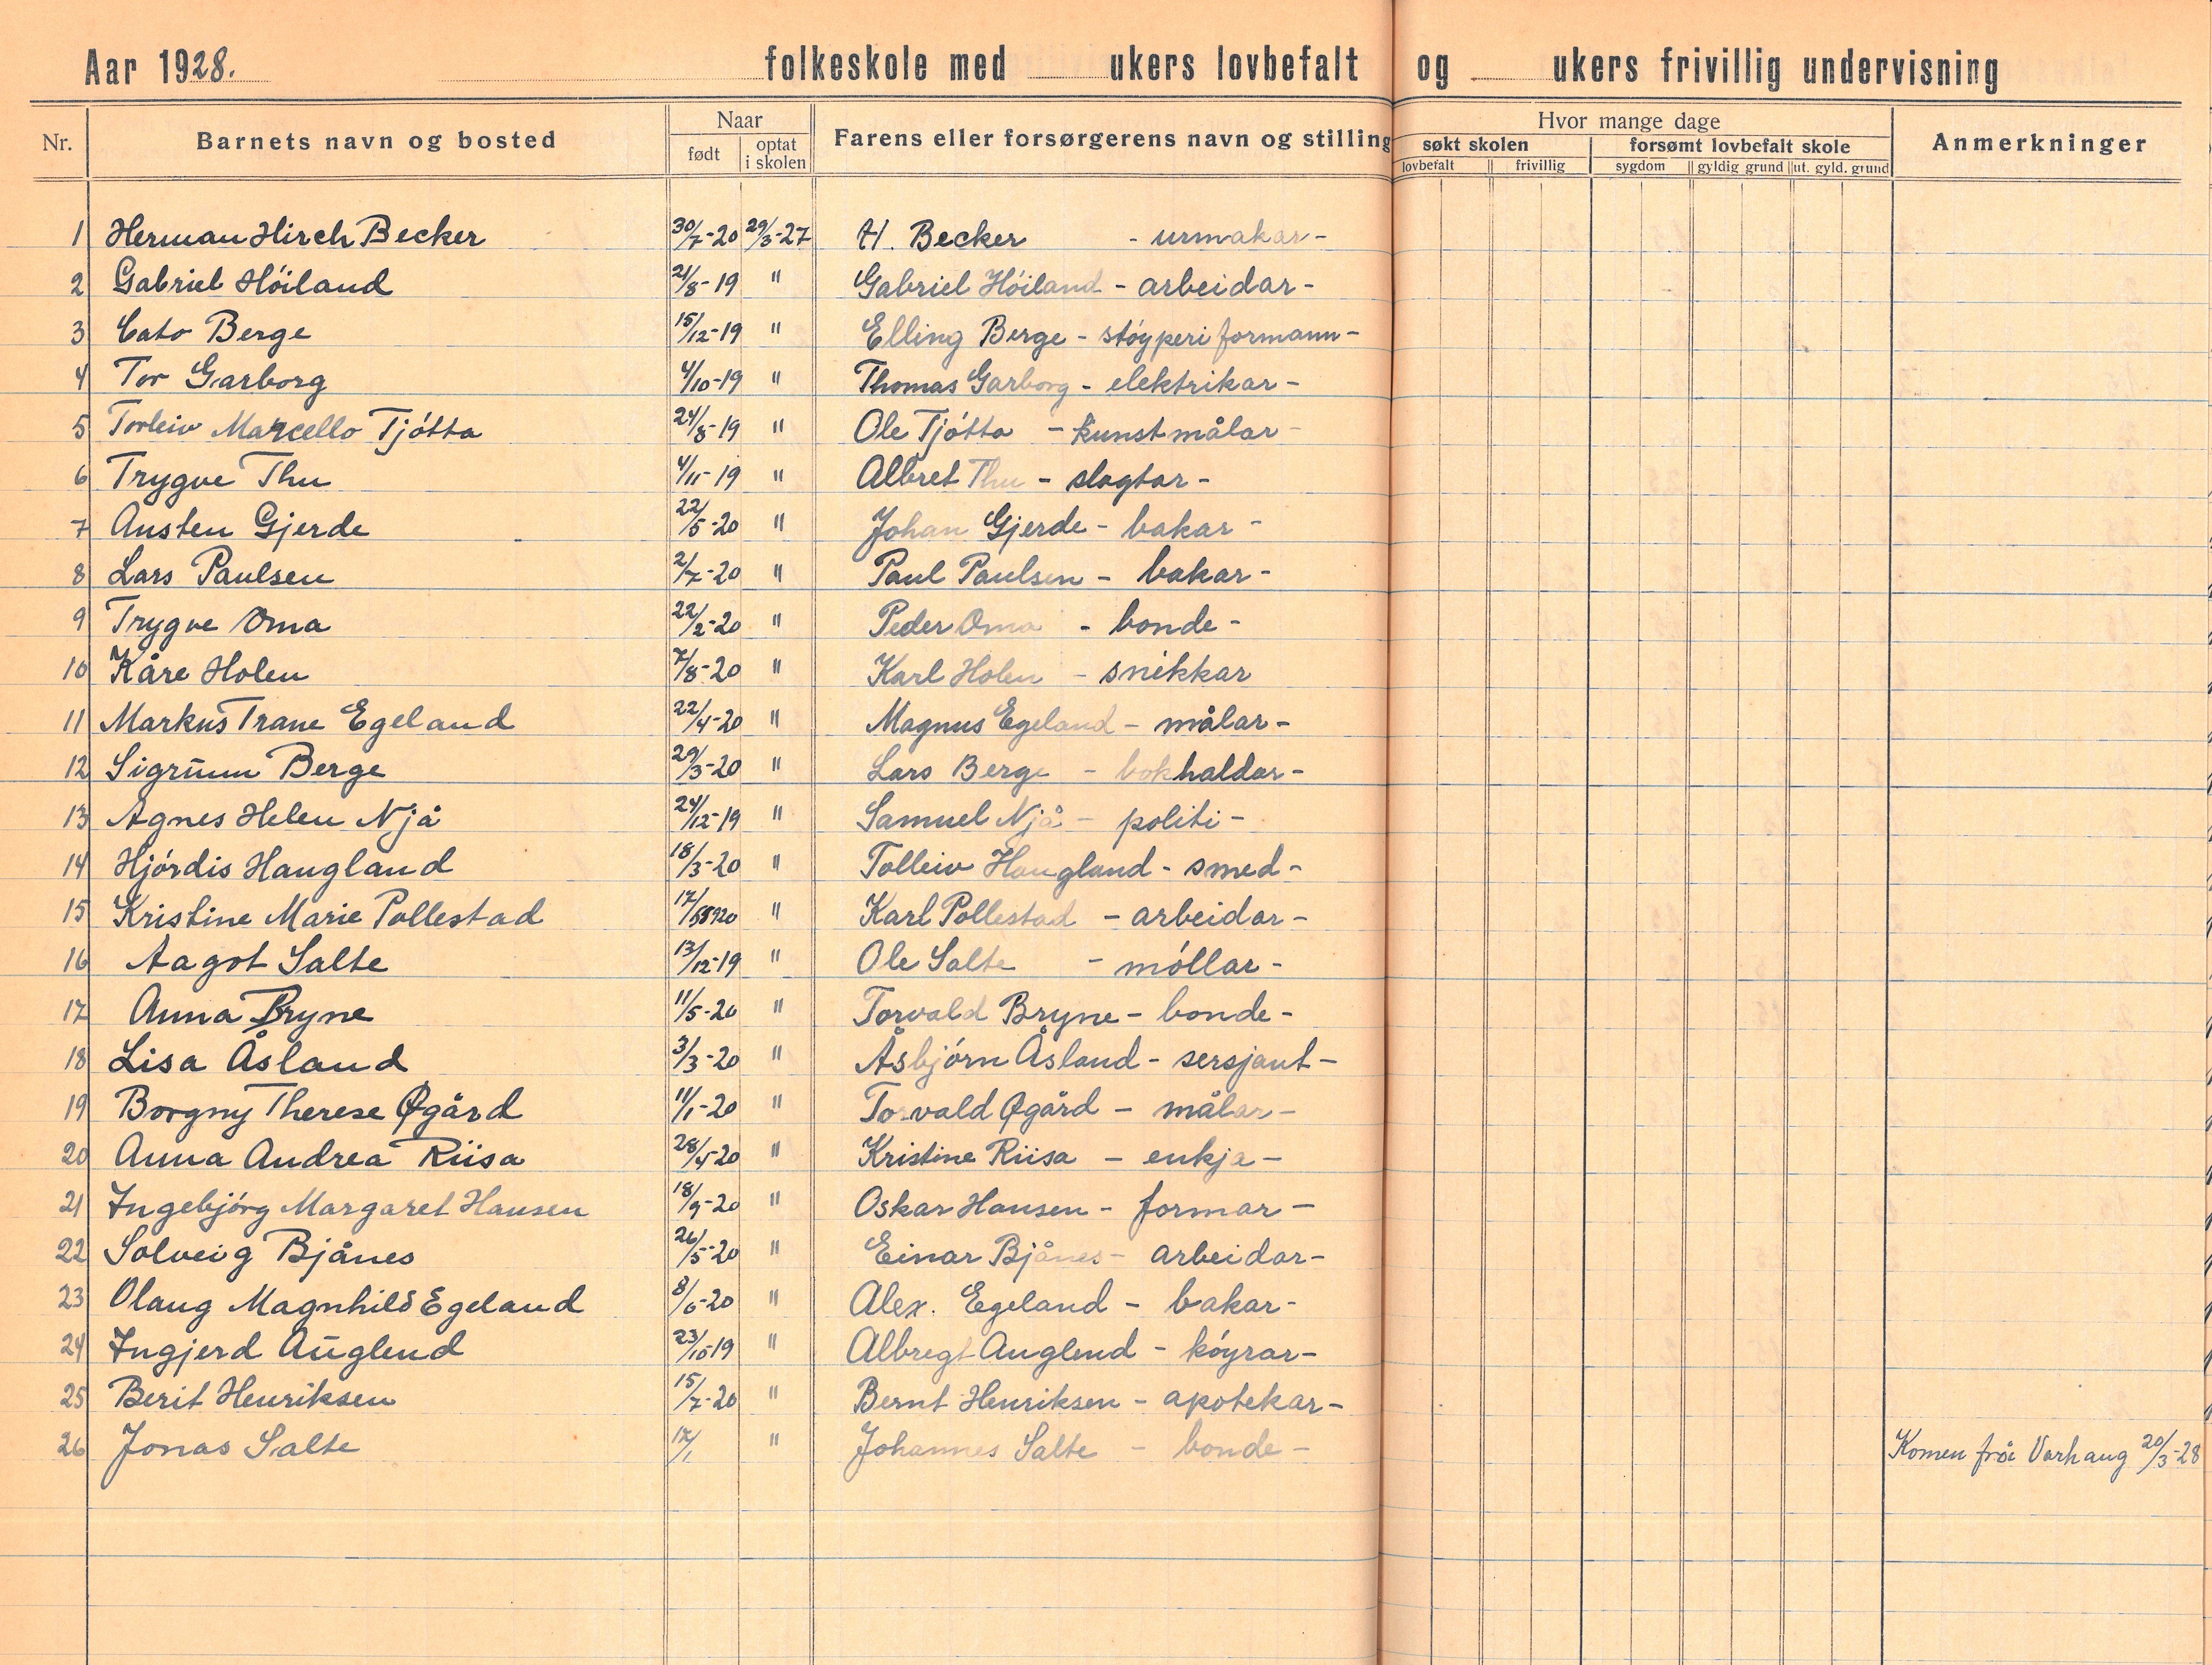 Aar 1928. folkeskole med ukers lovbefalt og ukers frivillig undervisning
Nr. Barnets navn og bosted Naar født optat i skolen Farens eller forsørgerens navn og stilling Hvor mange dage søkt skolen lovbefalt frivillig forsømt lovbefalt skole sygdom gyldig grund ut. gyld. grund Anmerkninger
1 Herman Hirch Becker 30/7-20 29/3-27 H. Becker - urmakar-
2 Gabriel Höiland 21/8-19 " Gabriel Höiland - arbeidar-
3 Cato Berge 15/12-19 " Elling Berge - stöyperi formann-
4 Tor Garborg 4/10-19 " Thomas Garborg - elektrikar-
5 Torleiv Marcello Tjötta 24/8-19 " Ole Tjötta - kunstmålar-
6 Trygve Thu 4/11-19 " Albret Thu - slagtar-
7 Austen Gjerde 22/5-20 " Johan Gjerde - bakar-
8 Lars Paulsen 2/7-20 " Paul Paulsen - bakar-
9 Trygve Oma 22/2-20 " Peder Oma - bonde-
10 Kåre Holen 7/8-20 " Karl Holen - snikkar
11 Markus Trane Egeland 22/4-20 " Magnus Egeland - målar-
12 Sigrunn Berge 29/3-20 " Lars Berge - bokhaldar-
13 Agnes Helen Njå 24/12-19 " Samuel Njå - politi-
14 Hjördis Haugland 18/3-20 " Tolleiv Haugland - smed-
15 Kristine Marie Pollestad " Karl Pollestad - arbeidar-
16 Aagot Salte 13/12-19 " Ole Salte - möllar-
17 Anna Bryne 11/5-20 " Torvald Bryne - bonde-
18 Lisa Åsland 3/3-20 " Åsbjörn Åsland - sersjant-
19 Borgny Therese Øgård 11/1-20 " Torvald Øgård - målar-
20 Anna Andrea Riisa 28/4-20 " Kristine Riisa - enkja-
21 Ingebjörg Margaret Hansen 18/9-20 " Oskar Hansen - formar-
22 Solveig Bjånes 26/5-20 " Einar Bjånes - arbeidar-
23 Olaug Magnhild Egeland 8/6-20 " Alex. Egeland - bakar-
24 Ingjerd Auglend 23/10-19 " Albregt Auglend - köyrar-
25 Berit Henriksen 15/7-20 " Bernt Henriksen - apotekar-
26 Jonas Salte 17/1 " Johannes Salte - bonde- Komen frå Varhaug 20/3-28